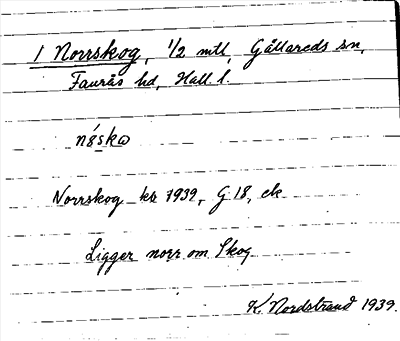 1 Norrskog, 1/2 mtl, Gällareds sn,
Faurås hd, Hall. l.
nǿska
Norrskog kr 1939, G 18, ek
Ligger norr om Skog
K. Nordstrand 1939.